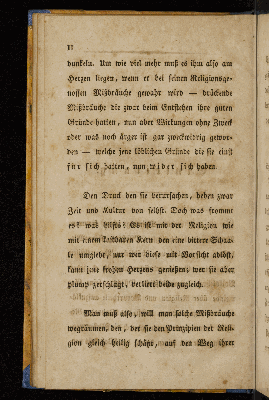 II
dunkeln. Um wie viel mehr muß es ihm also am
Herzen liegen, wenn er bei seinen Religionsge-
nossen Mißbräuche gewahr wird — drückende
Mißbräuche die zwar beim Entstehen ihre guten
Gründe hatten, nun aber Wirkungen ohne Zweck
oder was noch ärger ist gar zweckwidrig gewor-
den — welche jene löblichen Gründe die sie einst
für sich hatten, nun wider sich haben.
Den Druck den sie verursachen, heben zwar
Zeit und Kultur von selbst. Doch was kommt
es? was hilfts? Es ist mit der Religion wie
mit einem kostbaren Kern den eine bittere Schaa-
le umgiebt, nur wer diese mit Vorsicht ablößt,
kann jene frohen Herzens genießen; wer sie aber
plump zerschlägt, verliert beide zugleich.
Man muß also, will man solche Mißbräuche
wegräumen, den, der sie den Prinzipien der Reli-
gion gleich heilig schätzt, auf den Weg ihrer